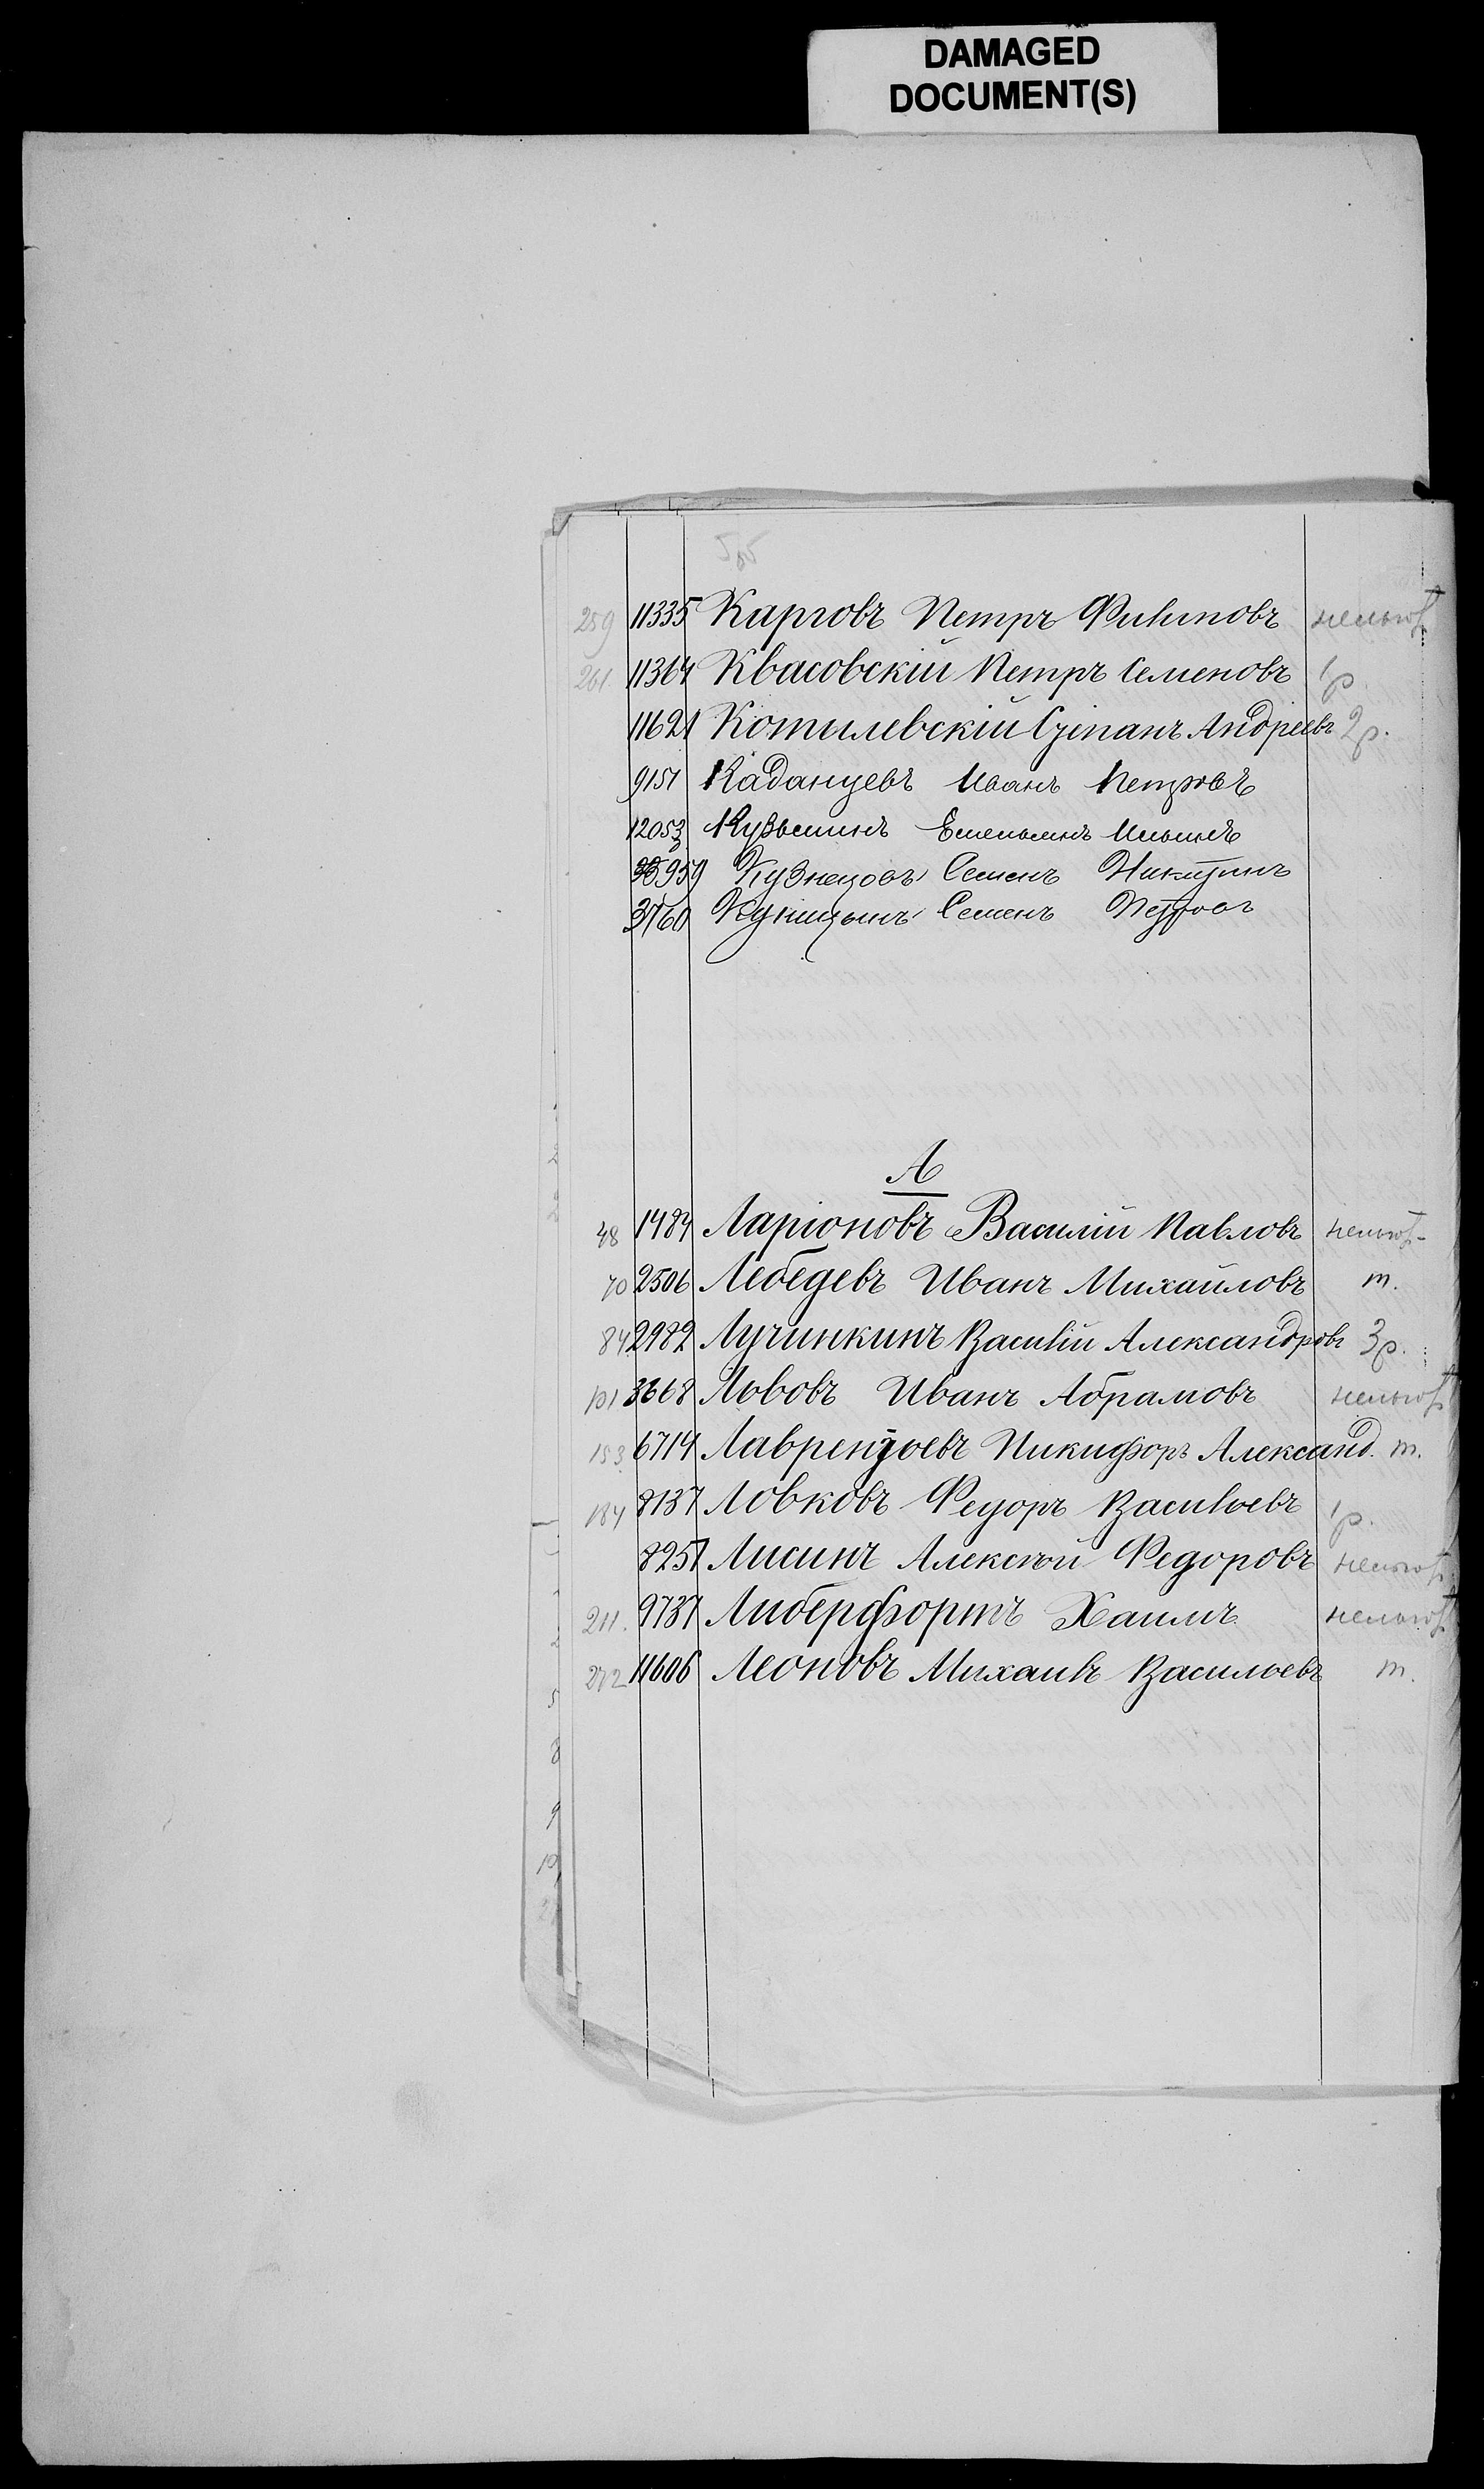 DAMAGED
DOCUMENT(S)
259 11335 Карповъ Петръ Филиповъ нельгот
261 11364 Квасовскій Петръ Семеновъ 1 р
11621 Котылевскій Степанъ Андреевъ 2 р.
9151 Каданцевъ Иванъ Петровъ
12053 Кузьминъ Емельянъ Ильинъ
Кузнецовъ Семенъ Никитинъ
3760 Куницынъ Семенъ Петровъ
Л
48 1484 Ларіоновъ Василій Павловъ нельгот-
70 2506 Лебедевъ Иванъ Михайловъ т.
84 2982 Лучинкинъ Василій Александровъ 3 р.
101 3668 Львовъ Иванъ Абрамовъ нельгот
153 6714 Лаврентьевъ Никифоръ Александ. т.
184 8137 Ловковъ Федоръ Васильевъ 1 р.
8251 Лисинъ Алексѣй Федоровъ нельгот
211. 9737 Либерфортъ Хаимъ нельгот
272 11606 Леоновъ Михаилъ Васильевъ т.